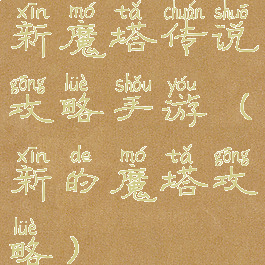 xīn mó tǎ chuán shuō
新魔塔传说
gōng lüè shǒu yóu
攻略手游（
xīn de mó tǎ gōng
新的魔塔攻
lüè
略）